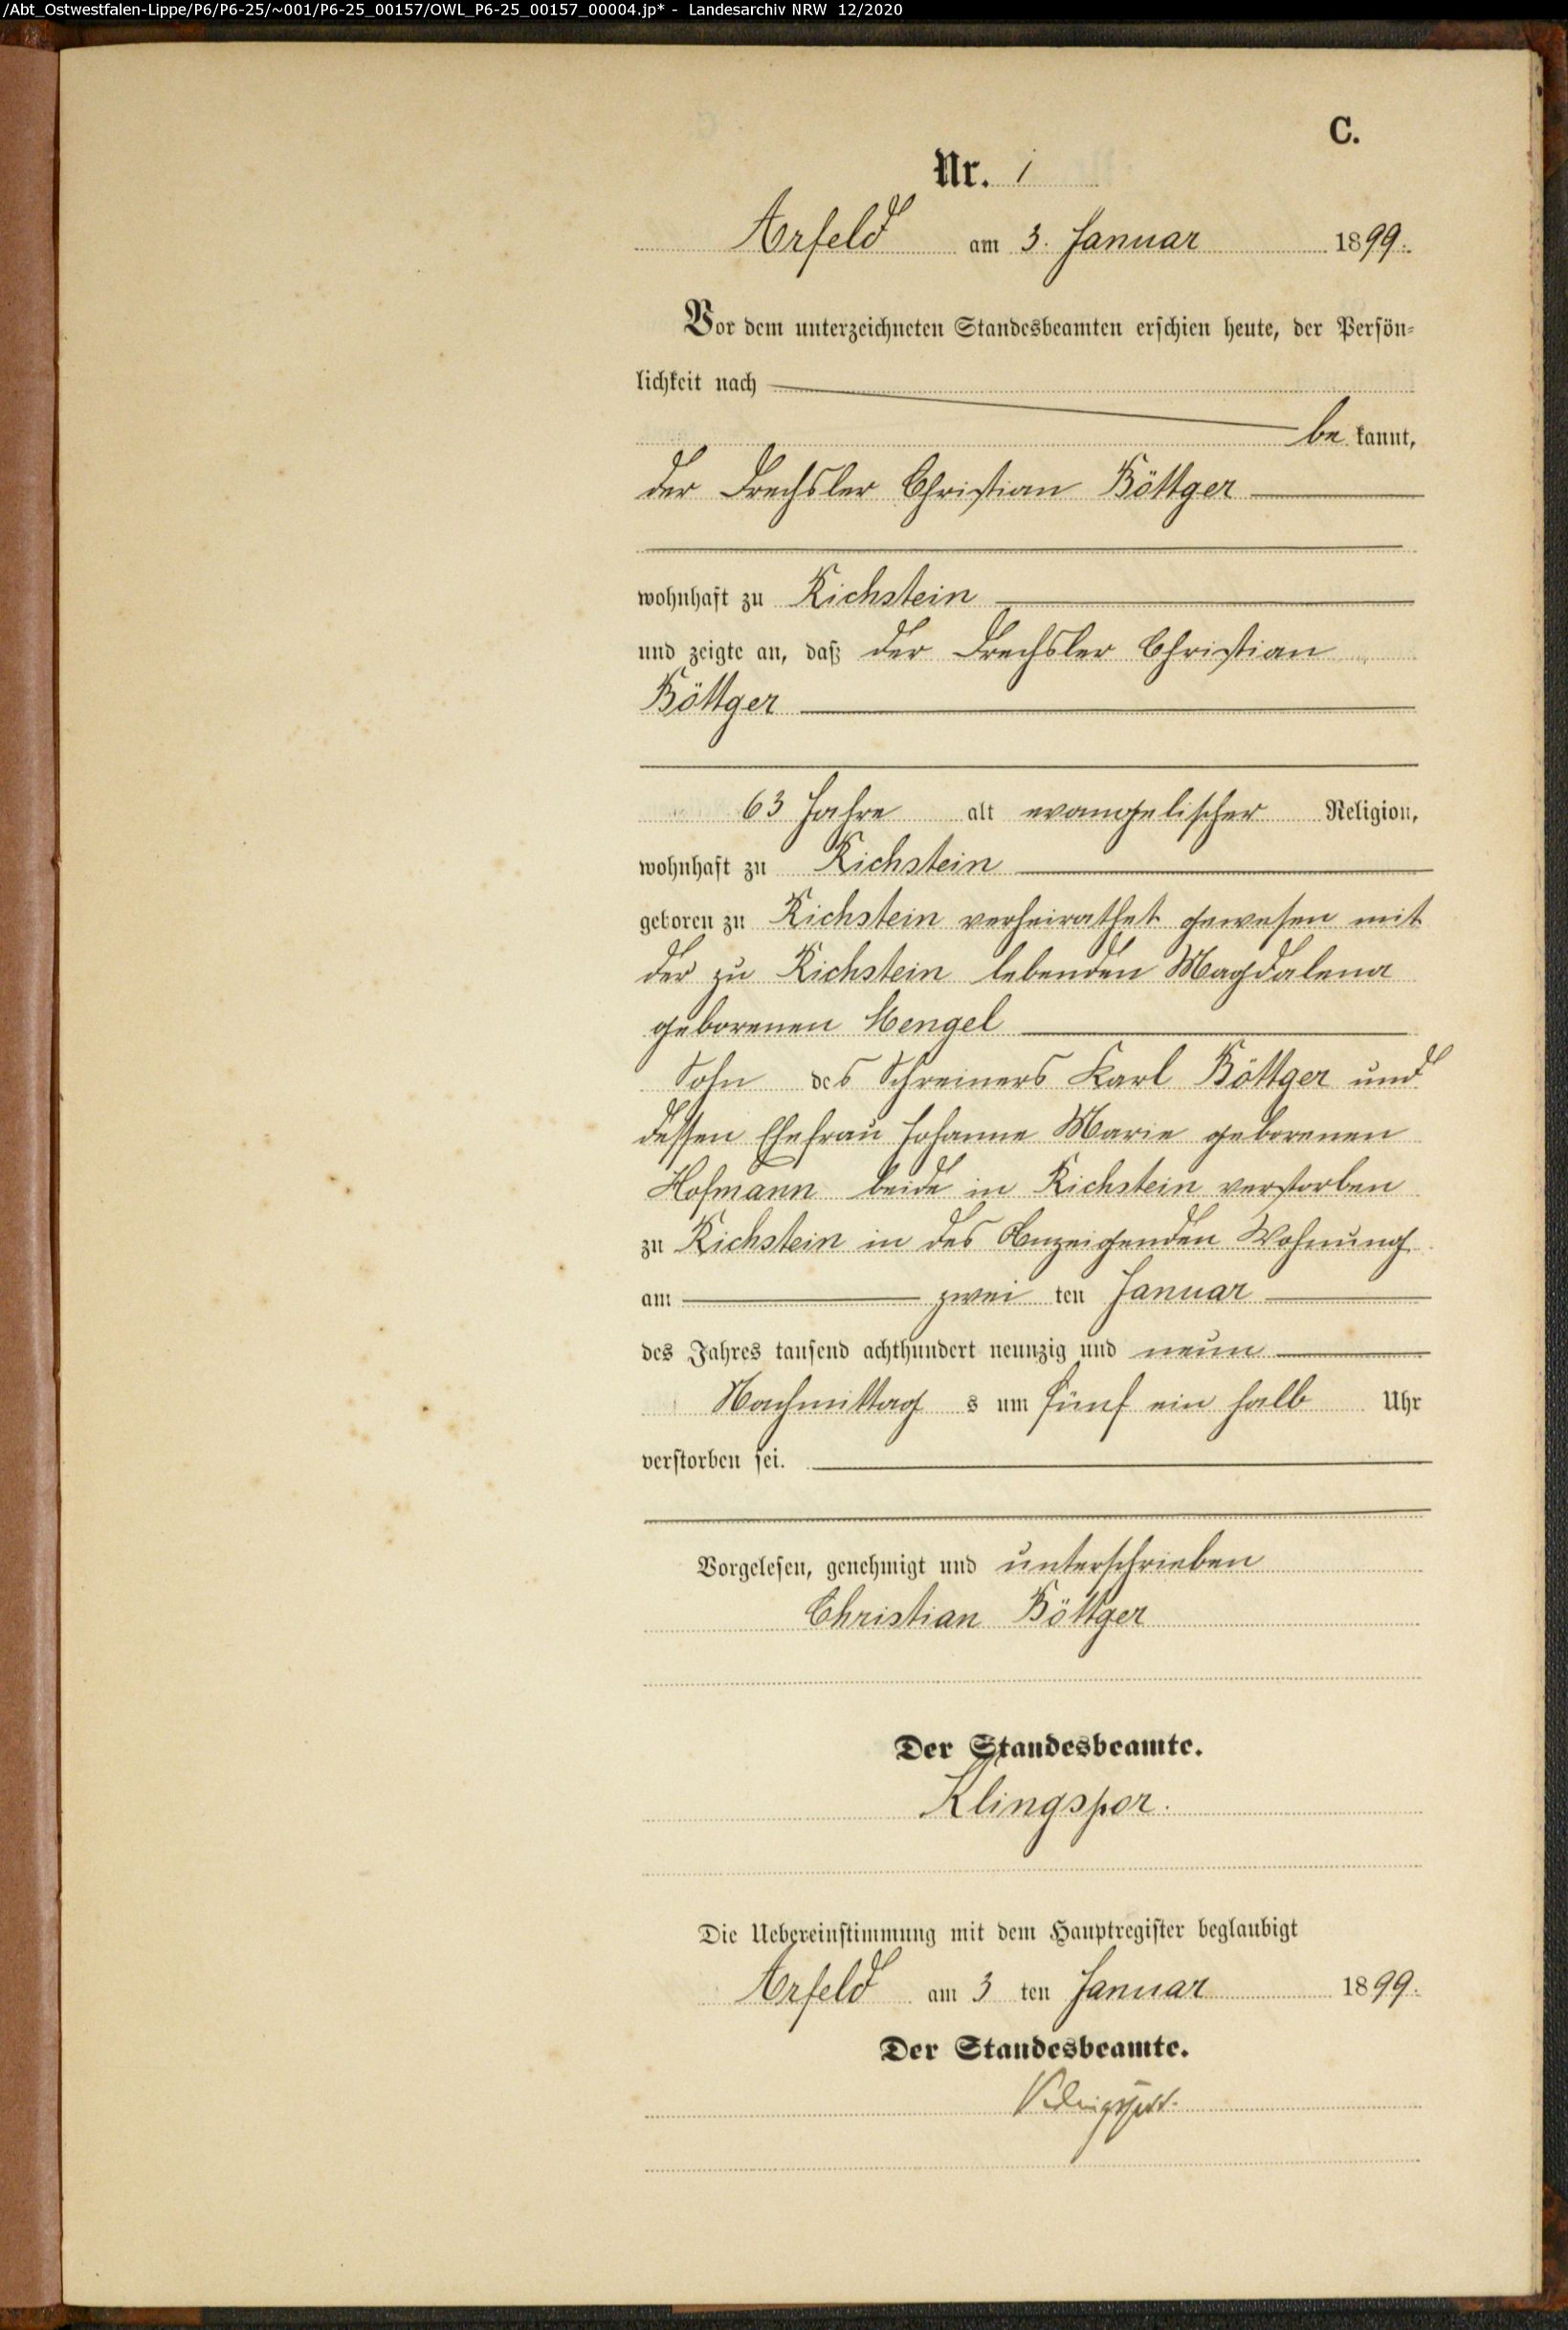 /Abt_Ostwestfalen-Lippe/P6/P6-25/~001/P6-25_00157/OWL_P6-25_00157_00004.jp* - Landesarchiv NRW 12/2020
C.
Nr. 1
Arfeld am 3. Januar 1899.
Vor dem unterzeichneten Standesbeamten erschien heute, der Persön-
lichkeit nach
be kannt,
der Drechsler Christian Böttger
wohnhaft zu Richstein
und zeigte an, daß der Drechsler Christian
Böttger
63 Jahre alt evangelischer Religion,
wohnhaft zu Richstein
geboren zu Richstein verheirathet gewesen mit
der zu Richstein lebenden Magdalena
geborenen Mengel
Sohn des Schreiners Karl Böttger und
dessen Ehefrau Johanne Marie geborenen
Hofmann beide in Richstein verstorben
zu Richstein in des Anzeigenden Wohnung
am zwei ten Januar
des Jahres tausend achthundert neunzig und neun
Nachmittag s um fünf ein halb Uhr
verstorben sei.
Vorgelesen, genehmigt und unterschrieben
Christian Böttger
Der Standesbeamte.
Klingspor.
Die Uebereinstimmung mit dem Hauptregister beglaubigt
Arfeld am 3 ten Januar 1899.
Der Standesbeamte.
Klingspor.